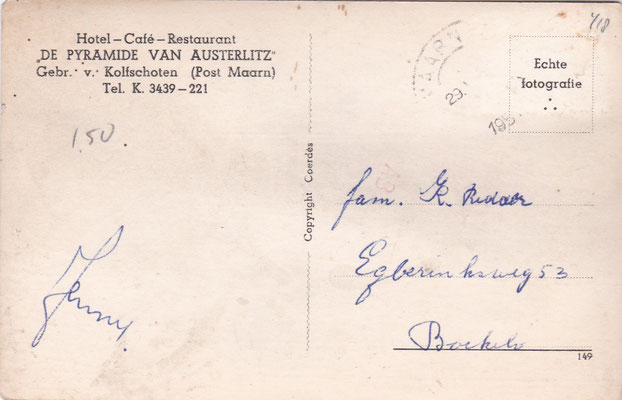 Hotel–Café–Restaurant
"DE PYRAMIDE VAN AUSTERLITZ"
Gebr. v. Kolfschoten (Post Maarn)
Tel. K. 3439–221
1,50
Jenny.
Copyright Coerdès
MAARN
29.
195
418
Echte
fotografie
fam. K. Ridder
Egberinksweg 53
Boekelo
149